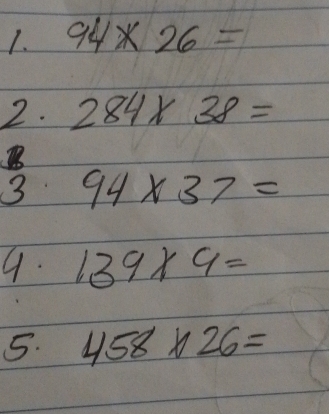 1. 94 x 26 =
2. 284 x 38 =
3. 94 x 37 =
4. 139 x 9 =
5. 458 x 26 =